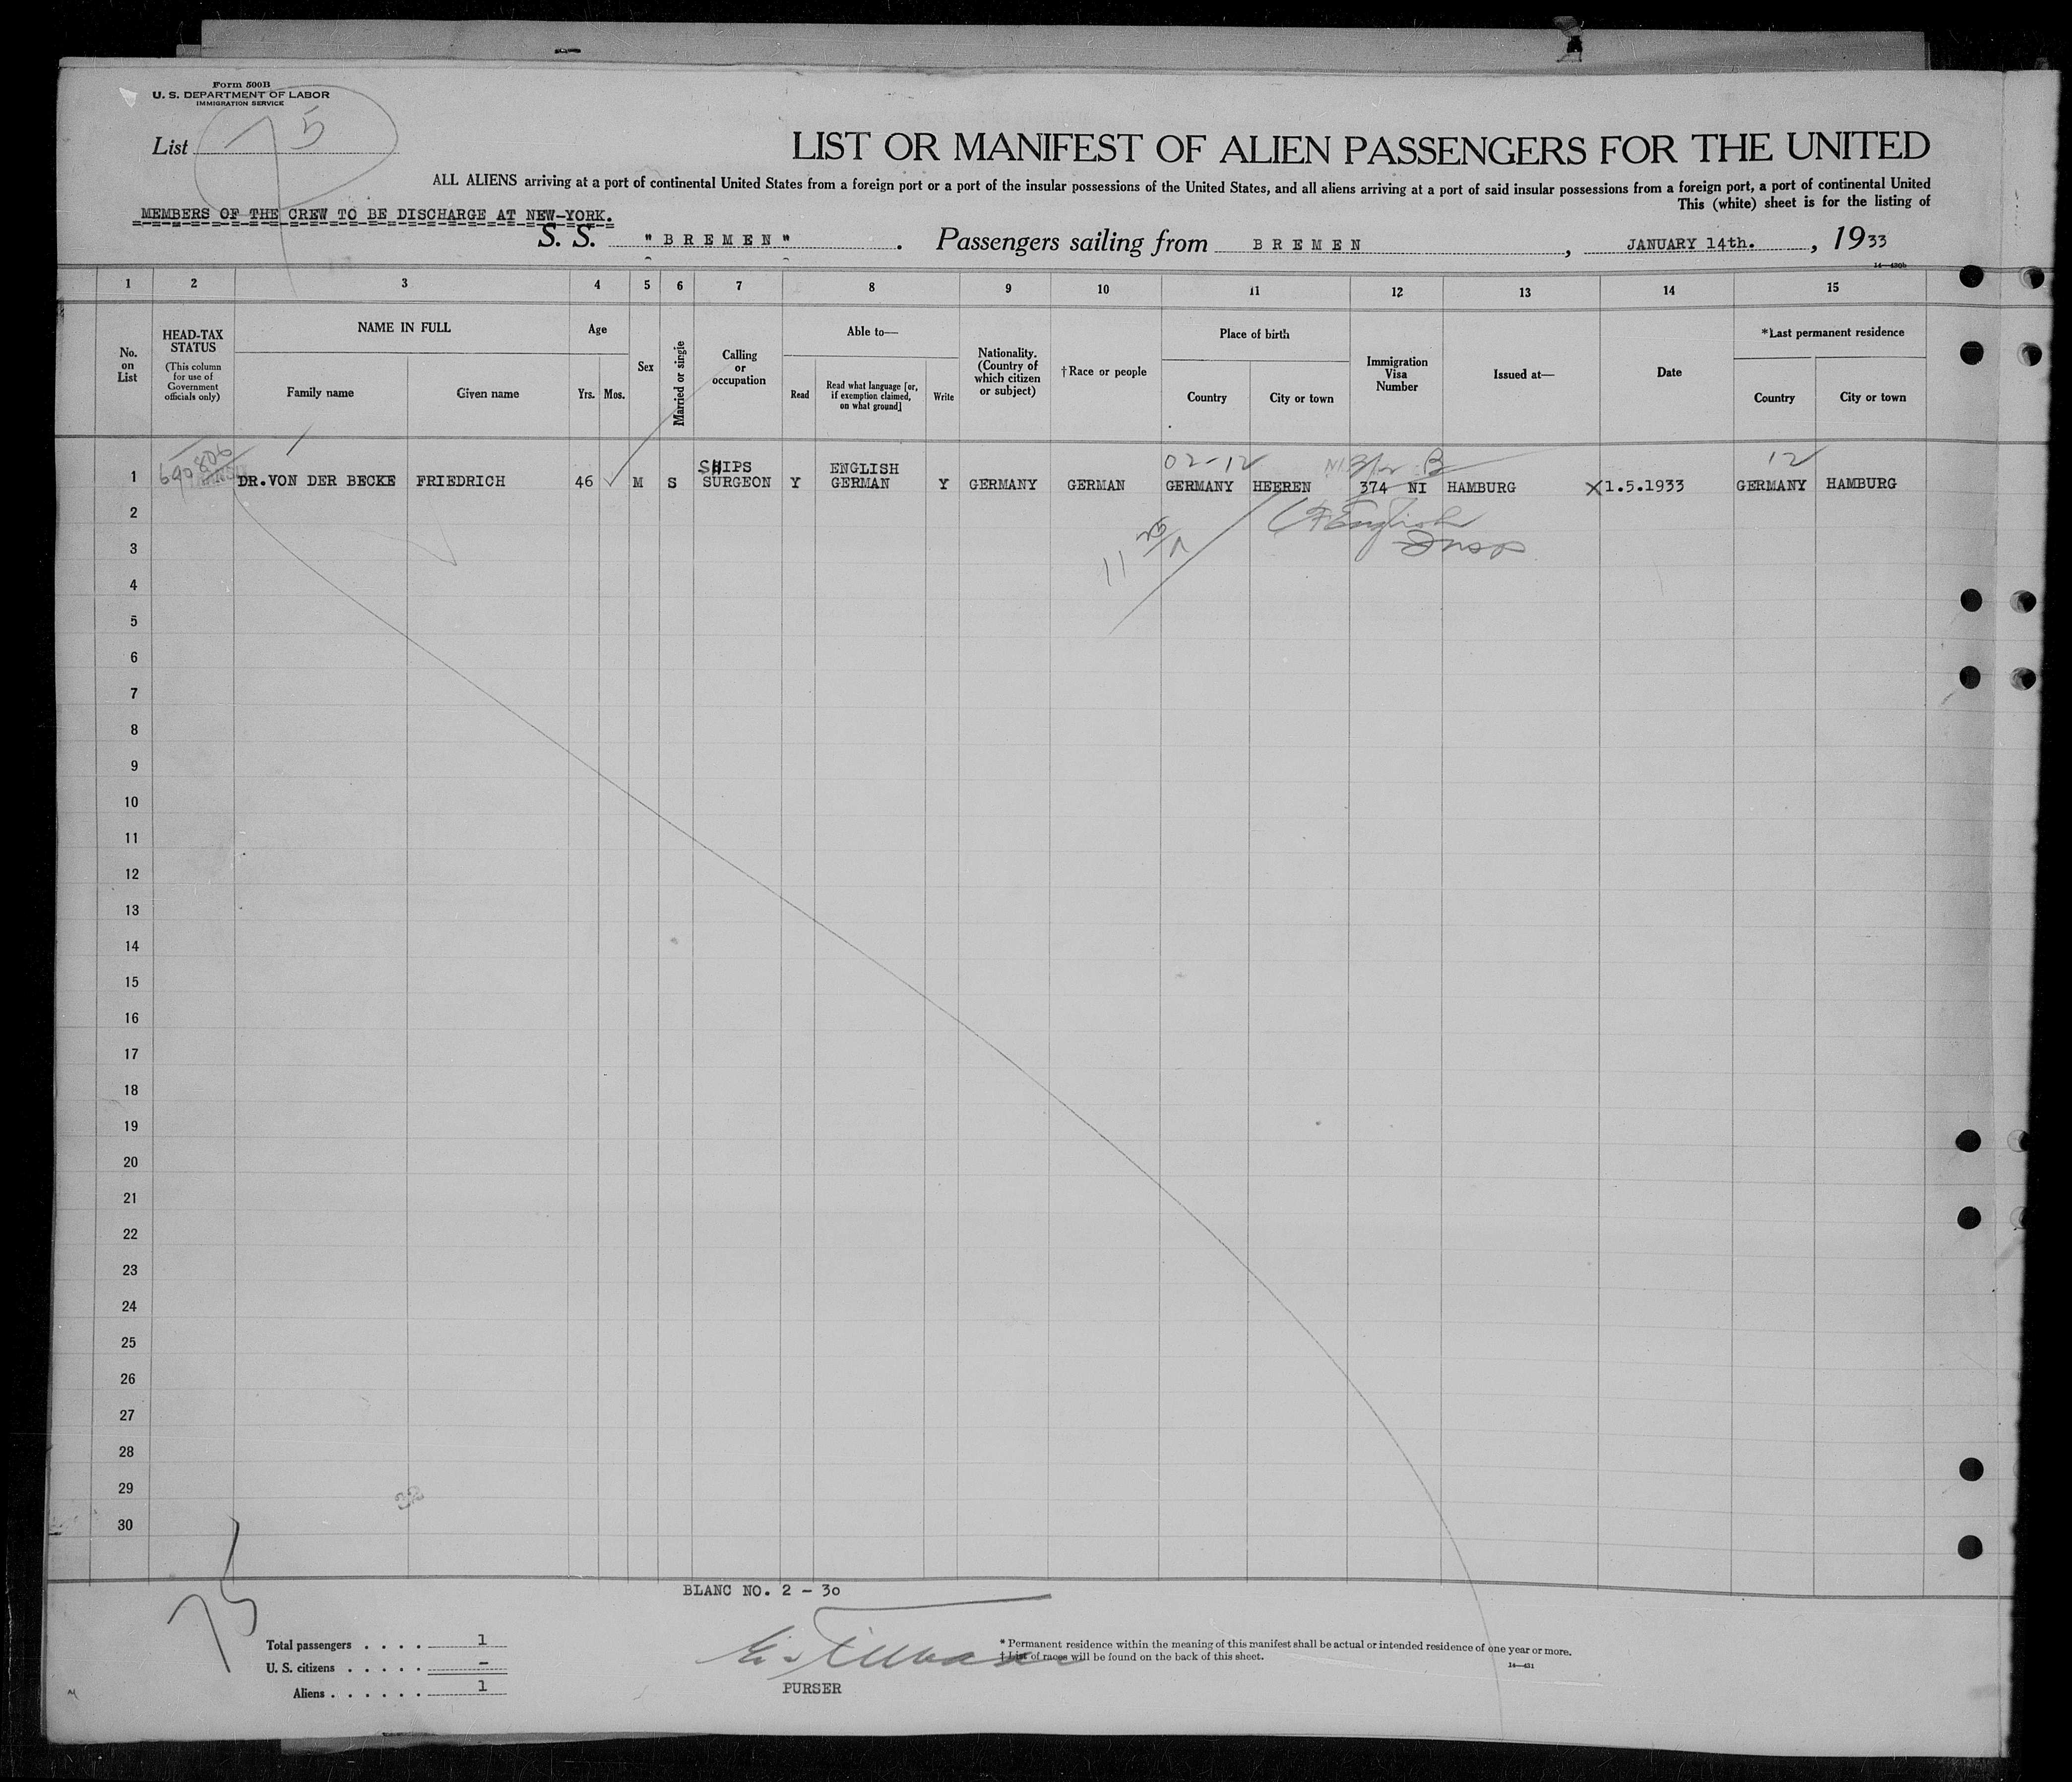 Form 500B
U. S. DEPARTMENT OF LABOR
IMMIGRATION SERVICE
List 75
LIST OR MANIFEST OF ALIEN PASSENGERS FOR THE UNITED
ALL ALIENS arriving at a port of continental United States from a foreign port or a port of the insular possessions of the United States, and all aliens arriving at a port of said insular possessions from a foreign port, a port of continental United
This (white) sheet is for the listing of
MEMBERS OF THE CREW TO BE DISCHARGE AT NEW-YORK.
S. S. "BREMEN". Passengers sailing from BREMEN, JANUARY 14th., 1933
14—430b
1 2 3 4 5 6 7 8 9 10 11 12 13 14 15
No. on List
HEAD-TAX STATUS
(This column for use of Government officials only)
NAME IN FULL
Family name
Given name
Age
Yrs. Mos.
Sex
Married or single
Calling or occupation
Able to—
Read
Read what language [or, if exemption claimed, on what ground]
Write
Nationality. (Country of which citizen or subject)
†Race or people
Place of birth
Country
City or town
Immigration Visa Number
Issued at—
Date
*Last permanent residence
Country
City or town
02-12 12
690806
1 DR.VON DER BECKE FRIEDRICH 46 M S SHIPS SURGEON Y ENGLISH GERMAN Y GERMANY GERMAN GERMANY HEEREN 374 NI HAMBURG 1.5.1933 GERMANY HAMBURG
2
3
4
5
6
7
8
9
10
11
12
13
14
15
16
17
18
19
20
21
22
23
24
25
26
27
28
29
30
32
BLANC NO. 2 - 30
75
Total passengers . . . . 1
U. S. citizens . . . . . -
Aliens . . . . . . 1
PURSER
* Permanent residence within the meaning of this manifest shall be actual or intended residence of one year or more.
† List of races will be found on the back of this sheet.
14—431